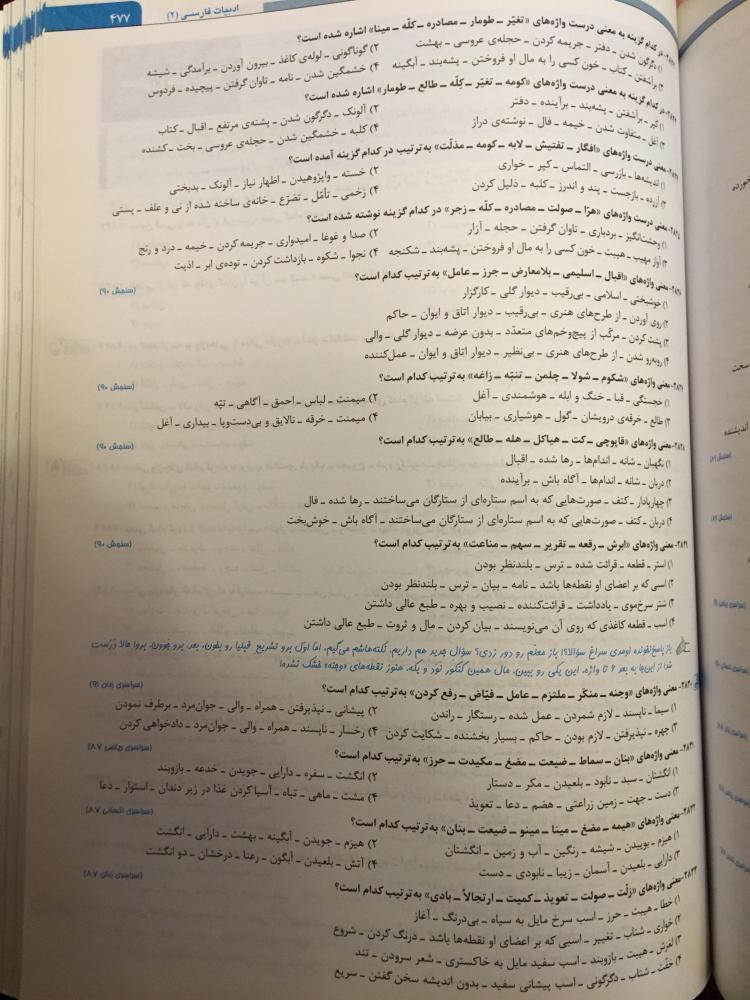 ادبیات فارسی (۲)
۴۷۷
در کدام گزینه به معنی درست واژه‌های «تغیّر ـ طومار ـ مصادره ـ کلّه ـ مینا» اشاره شده است؟
۱) دگرگون شدن ـ دفتر ـ جریمه کردن ـ حجله‌ی عروسی ـ بهشت
۲) گوناگونی ـ لوله‌ی کاغذ ـ بیرون آوردن ـ برآمدگی ـ شیشه
۳) برآشفتن ـ کتاب ـ خون کسی را به مال او فروختن ـ پشه‌بند ـ آبگینه
۴) خشمگین شدن ـ نامه ـ تاوان گرفتن ـ پیچیده ـ فردوس
در کدام گزینه به معنی درست واژه‌های «کومه ـ تغیّر ـ کِلّه ـ طالع ـ طومار» اشاره شده است؟
۱) کپر ـ برآشفتن ـ پشه‌بند ـ برآینده ـ دفتر
۲) آلونک ـ دگرگون شدن ـ پشته‌ی مرتفع ـ اقبال ـ کتاب
۳) آغل ـ متفاوت شدن ـ خیمه ـ فال ـ نوشته‌ی دراز
۴) کلبه ـ خشمگین شدن ـ حجله‌ی عروسی ـ بخت ـ کشنده
معنی درست واژه‌های «افگار ـ تفتیش ـ لابه ـ کومه ـ مذلّت» به‌ترتیب در کدام گزینه آمده است؟
۱) اندیشه‌ها ـ بازرسی ـ التماس ـ کپر ـ خواری
۲) خسته ـ واپژوهیدن ـ اظهار نیاز ـ آلونک ـ بدبختی
۳) آزرده ـ بازجست ـ پند و اندرز ـ کلبه ـ ذلیل کردن
۴) زخمی ـ تأمّل ـ تضرّع ـ خانه‌ی ساخته شده از نی و علف ـ پستی
معنی درست واژه‌های «هرّا ـ صولت ـ مصادره ـ کلّه ـ زجر» در کدام گزینه نوشته شده است؟
۱) وحشت‌انگیز ـ بردباری ـ تاوان گرفتن ـ حجله ـ آزار
۲) صدا و غوغا ـ امیدواری ـ جریمه کردن ـ خیمه ـ درد و رنج
۳) آواز مهیب ـ هیبت ـ خون کسی را به مال او فروختن ـ پشه‌بند ـ شکنجه
۴) نجوا ـ شکوه ـ بازداشت کردن ـ توده‌ی ابر ـ اذیت
۲۸۲۶- معنی واژه‌های «اقبال ـ اسلیمی ـ بلامعارض ـ جرز ـ عامل» به‌ترتیب کدام است؟
(سنجش ۹۰)
۱) خوشبختی ـ اسلامی ـ بی‌رقیب ـ دیوار گلی ـ کارگزار
۲) روی آوردن ـ از طرح‌های هنری ـ بی‌رقیب ـ دیوار اتاق و ایوان ـ حاکم
۳) پشت کردن ـ مرکّب از پیچ‌وخم‌های متعدّد ـ بدون عرضه ـ دیوار گلی ـ والی
۴) روبه‌رو شدن ـ از طرح‌های هنری ـ بی‌نظیر ـ دیوار اتاق و ایوان ـ عمل‌کننده
۲۸۲۷- معنی واژه‌های «شکوم ـ شولا ـ چلمن ـ تنبّه ـ زاغه» به‌ترتیب کدام است؟
(سنجش ۹۰)
۱) خجستگی ـ قبا ـ خنگ و ابله ـ هوشمندی ـ آغل
۲) میمنت ـ لباس ـ احمق ـ آگاهی ـ تپّه
۳) طالع ـ خرقه‌ی درویشان ـ گول ـ هوشیاری ـ بیابان
۴) میمنت ـ خرقه ـ نالایق و بی‌دست‌وپا ـ بیداری ـ آغل
۲۸۲۸- معنی واژه‌های «قاپوچی ـ کت ـ هیاکل ـ هله ـ طالع» به‌ترتیب کدام است؟
(سنجش ۹۰)
۱) نگهبان ـ شانه ـ اندام‌ها ـ رها شده ـ اقبال
۲) دربان ـ شانه ـ اندام‌ها ـ آگاه باش ـ برآینده
۳) چهارپادار ـ کتف ـ صورت‌هایی که به اسم ستاره‌ای از ستارگان می‌ساختند ـ رها شده ـ فال
۴) دربان ـ کتف ـ صورت‌هایی که به اسم ستاره‌ای از ستارگان می‌ساختند ـ آگاه باش ـ خوش‌بخت
۲۸۲۹- معنی واژه‌های «ابرش ـ رقعه ـ تقریر ـ سهم ـ مناعت» به‌ترتیب کدام است؟
(سنجش ۹۰)
۱) استر ـ قطعه ـ قرائت شده ـ ترس ـ بلندنظر بودن
۲) اسبی که بر اعضای او نقطه‌ها باشد ـ نامه ـ بیان ـ ترس ـ بلندنظر بودن
۳) شتر سرخ‌موی ـ یادداشت ـ قرائت‌کننده ـ نصیب و بهره ـ طبع عالی داشتن
۴) اسب ـ قطعه کاغذی که روی آن می‌نویسند ـ بیان کردن ـ مال و ثروت ـ طبع عالی داشتن
باز پاسخ‌نخونده اومدی سراغ سؤالا؟! باز معلّم رو دور زدی؟ سؤال جدید هم داریم، نکته‌هاشم می‌گیم، امّا اوّل برو تشریح قبلیا رو بخون، بعد. برو بخون، برو! حالا درست
شد! از این‌جا به بعد ۶ تا واژه. این یکی رو ببین. مال همین کنکور نود و یکه. هنوز نقطه‌های «وجنه» خشک نشده!
۲۸۳۰- معنی واژه‌های «وجنه ـ منکَر ـ ملتزم ـ عامل ـ فیّاض ـ رفع کردن» به‌ترتیب کدام است؟
(سراسری زبان ۹۱)
۱) سیما ـ ناپسند ـ لازم شمردن ـ عمل شده ـ رستگار ـ راندن
۲) پیشانی ـ نپذیرفتن ـ همراه ـ والی ـ جوان‌مرد ـ برطرف نمودن
۳) چهره ـ نپذیرفتن ـ لازم بودن ـ حاکم ـ بسیار بخشنده ـ شکایت کردن
۴) رخسار ـ ناپسند ـ همراه ـ والی ـ جوان‌مرد ـ دادخواهی کردن
۲۸۳۱- معنی واژه‌های «بنان ـ سماط ـ ضیعت ـ مضغ ـ مکیدت ـ حرز» به‌ترتیب کدام است؟
(سراسری ریاضی ۸۷)
۱) انگشتان ـ سبد ـ نابود ـ بلعیدن ـ مکر ـ دستار
۲) انگشت ـ سفره ـ دارایی ـ جویدن ـ خدعه ـ بازوبند
۳) دست ـ جهت ـ زمین زراعتی ـ هضم ـ دعا ـ تعویذ
۴) مشت ـ ماهی ـ تباه ـ آسیا کردن غذا در زیر دندان ـ استوار ـ دعا
۲۸۳۲- معنی واژه‌های «هیمه ـ مضغ ـ مینا ـ مینو ـ ضیعت ـ بنان» به‌ترتیب کدام است؟
(سراسری انسانی ۸۷)
۱) هیزم ـ بوییدن ـ شیشه ـ رنگین ـ آب و زمین ـ انگشتان
۲) هیزم ـ جویدن ـ آبگینه ـ بهشت ـ دارایی ـ انگشت
۳) دارایی ـ بلعیدن ـ آسمان ـ زیبا ـ نابودی ـ دست
۴) آتش ـ بلعیدن ـ آبگون ـ رعنا ـ درخشان ـ دو انگشت
۲۸۳۳- معنی واژه‌های «زلّت ـ صولت ـ تعویذ ـ کمیت ـ ارتجالاً ـ بادی» به‌ترتیب کدام است؟
(سراسری زبان ۸۷)
۱) خطا ـ هیبت ـ حرز ـ اسب سرخ مایل به سیاه ـ بی‌درنگ ـ آغاز
۲) خواری ـ شتاب ـ تغییر ـ اسبی که بر اعضای او نقطه‌ها باشد ـ درنگ کردن ـ شروع
۳) لغزش ـ هیبت ـ بازوبند ـ اسب سفید مایل به خاکستری ـ شعر سرودن ـ تند
۴) خفّت ـ شتاب ـ دگرگونی ـ اسب پیشانی سفید ـ بدون اندیشه سخن گفتن ـ سریع